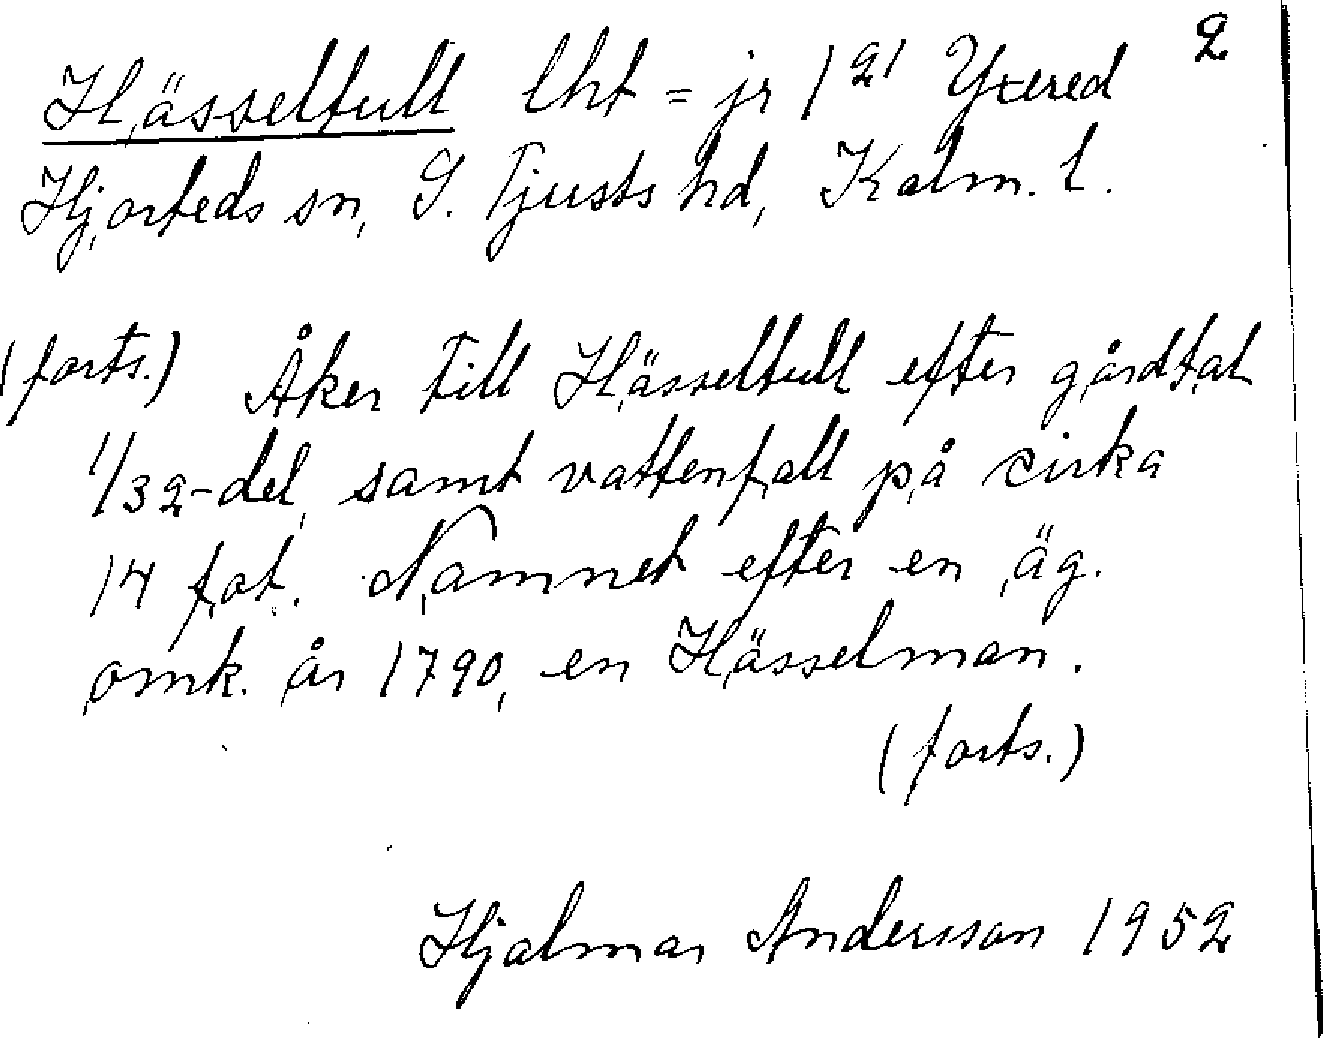 2
Hässeltull lht = jr 1²¹ Yxered
Hjorteds sn, S. Tjusts hd, Kalm. l.
(forts.) Åker till Hässeltull efter gårdtal
1/32-del, samt vattenfall på cirka
14 fot. Namnet efter en äg.
omk. år 1790, en Hässelman.
(forts.)
Hjalmar Andersson 1952